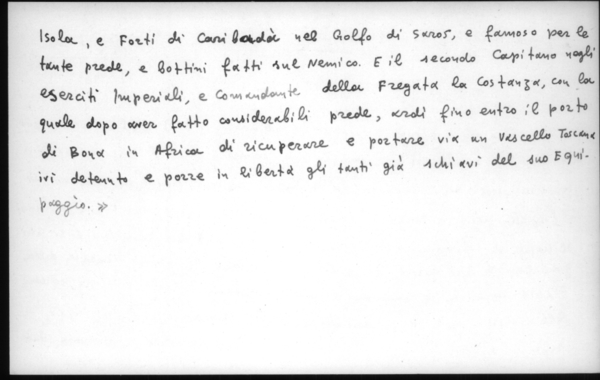 Isola, e Forti di Caribadà nel Golfo di Saros, e famoso per le
tante prede, e bottini fatti sul Nemico. E il secondo Capitano negli
eserciti Imperiali, e Comandante della Fregata la Costanza, con la
quale dopo aver fatto considerabili prede, ardì fino entro il porto
di Bona in Africa di ricuperare e portare via un Vascello Toscana
ivi detenuto e porre in libertà gli tanti già schiavi del suo Equi-
paggio. »